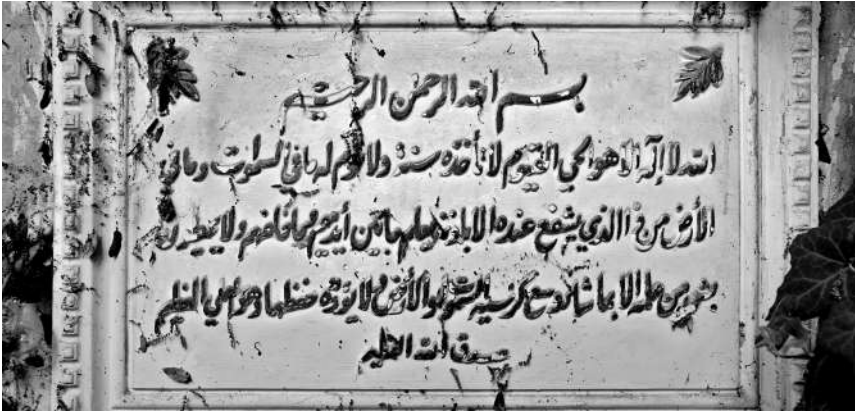 بسم الله الرحمن الرحيم
الله لا إله إلا هو الحي القيوم لا تأخذه سنة ولا نوم له ما في السموات وما في
الأرض من ذا الذي يشفع عنده إلا بإذنه يعلم ما بين أيديهم وما خلفهم ولا يحيطون
بشيء من علمه إلا بما شاء وسع كرسيه السموات والأرض ولا يؤده حفظهما وهو العلي العظيم
صدق الله العظيم